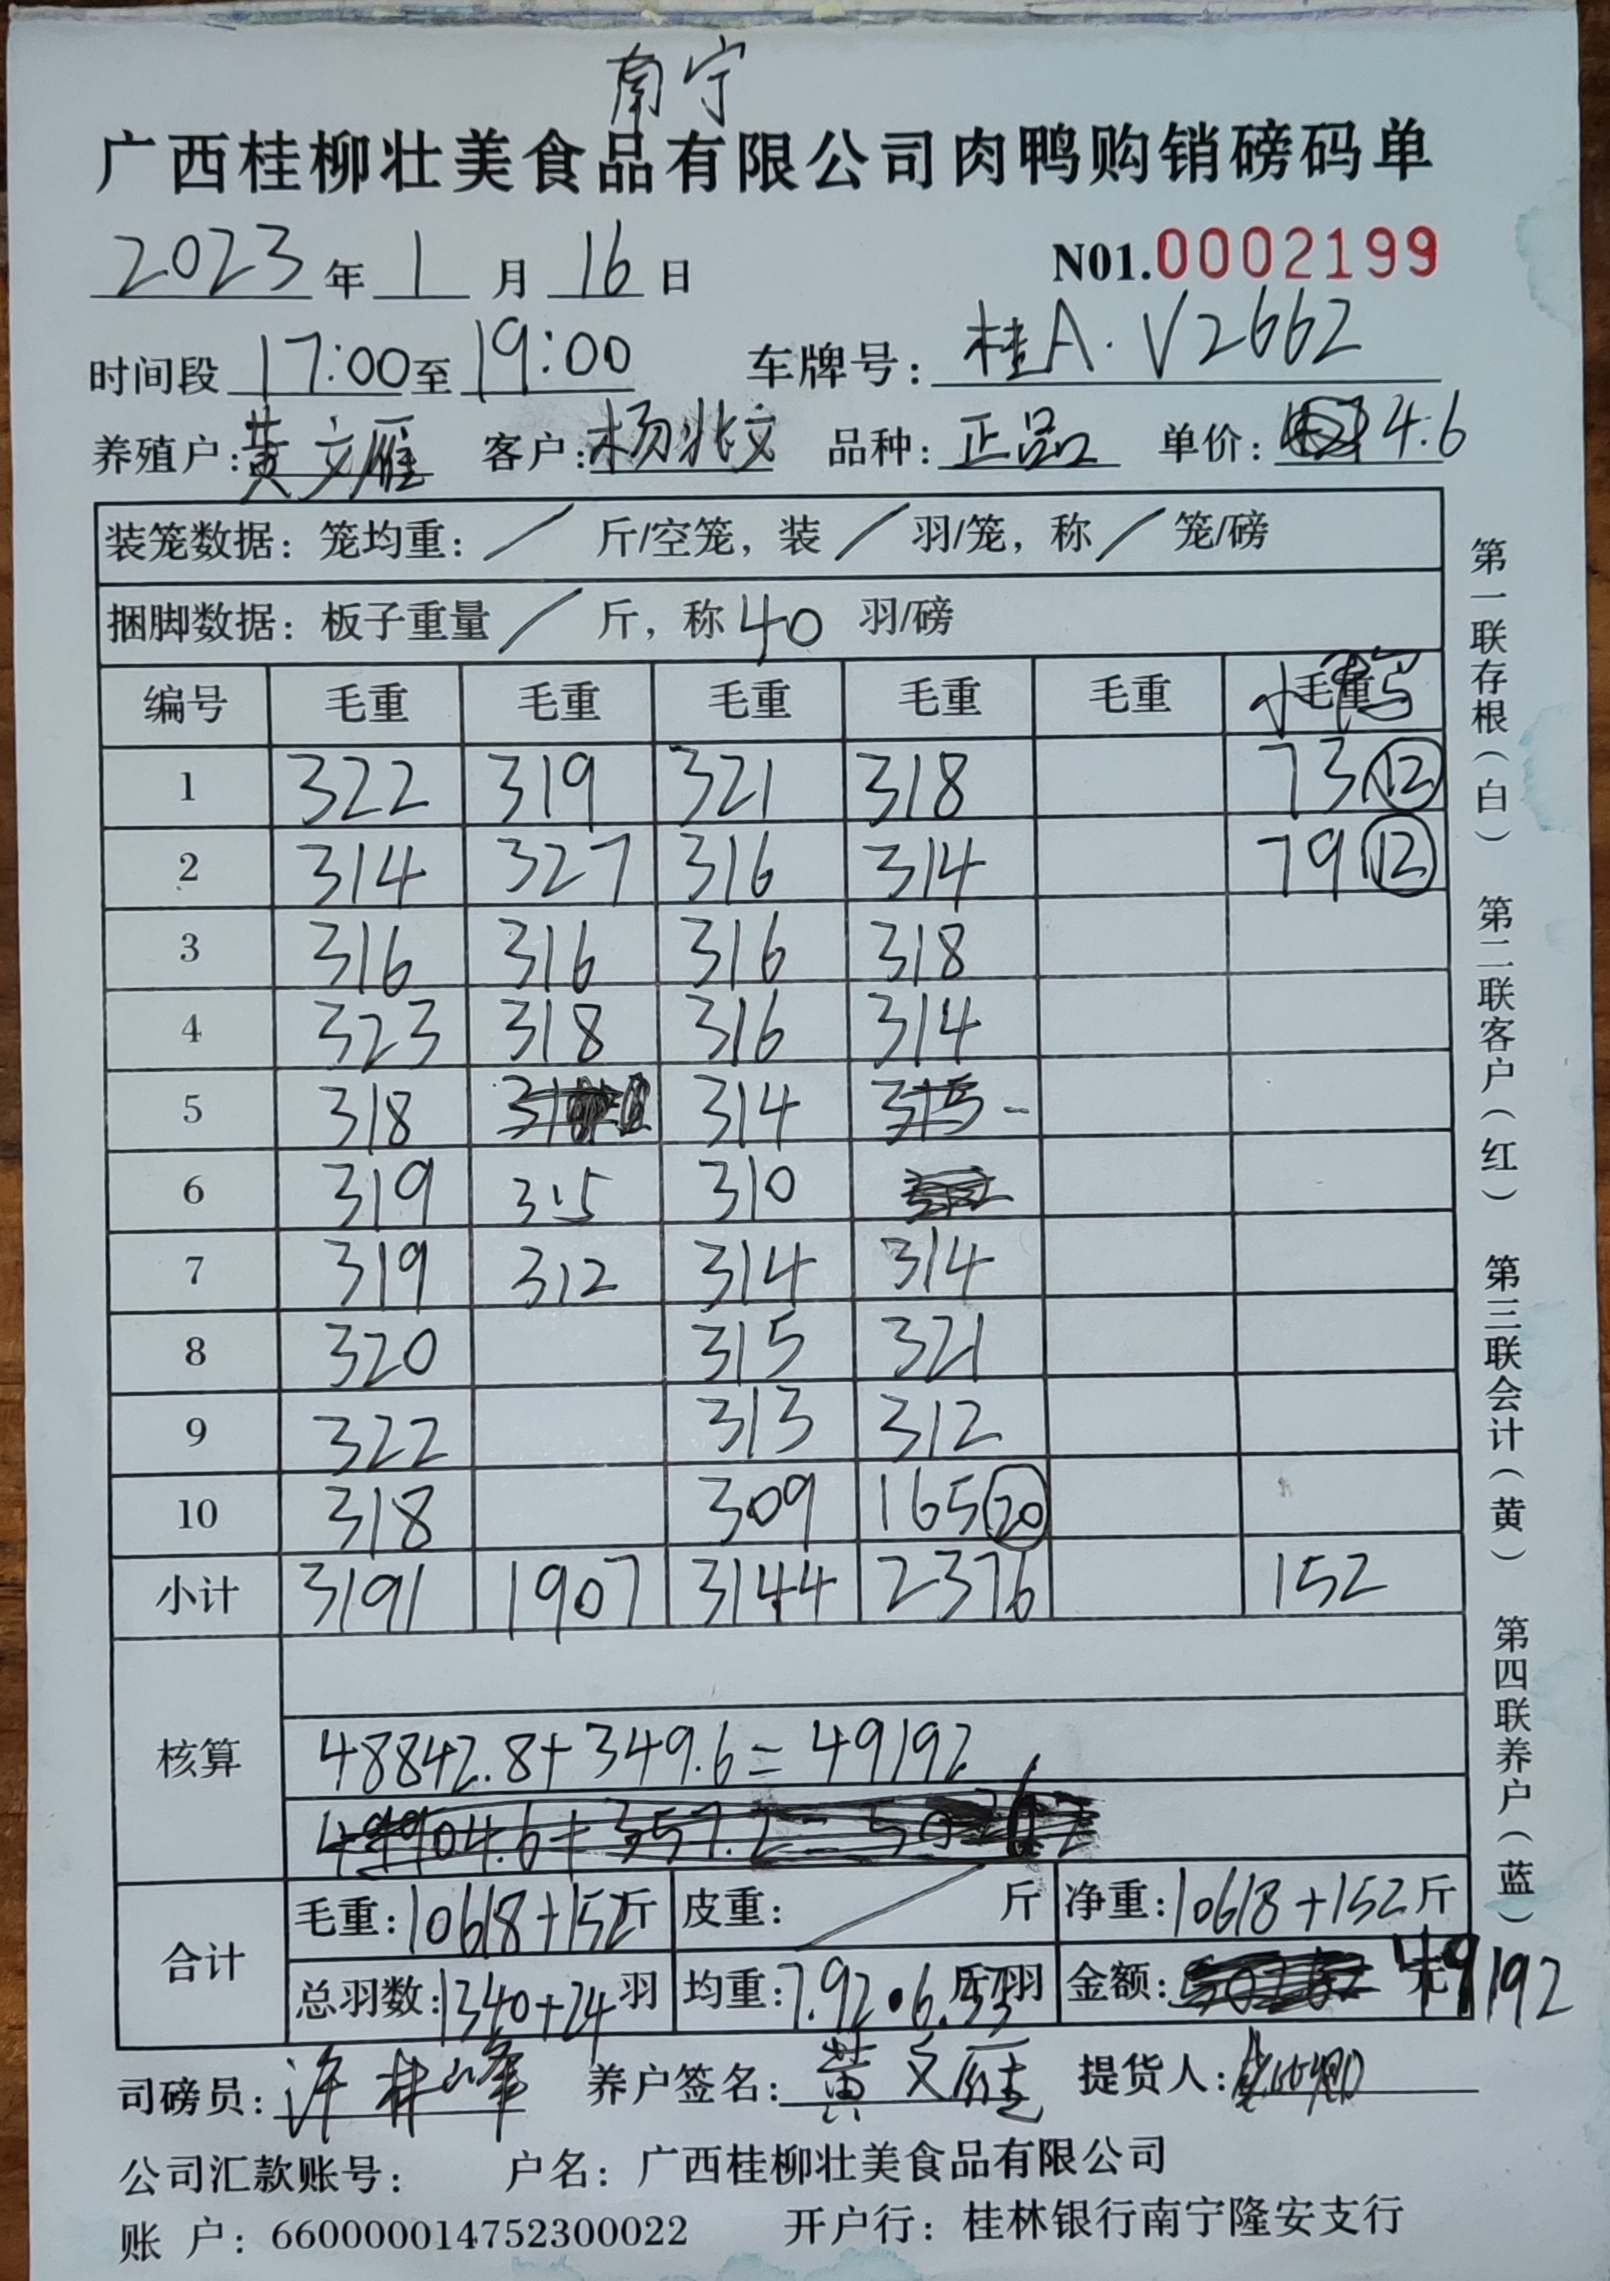 南宁
广西桂柳壮美食品有限公司肉鸭购销磅码单
2023年1月16日 N01.0002199
时间段17:00至19:00 车牌号：桂A·V2662
养殖户：黄文雁 客户：杨兆文 品种：正品 单价：4.6
装笼数据：笼均重：/ 斤/空笼，装 / 羽/笼，称 / 笼/磅
捆脚数据：板子重量 / 斤，称 40 羽/磅
编号 毛重 毛重 毛重 毛重 毛重 小毛重
1 322 319 321 318 73 12
2 314 327 316 314 79 12
3 316 316 316 318
4 323 318 316 314
5 318 314 315 -
6 319 315 310
7 319 312 314 314
8 320 315 321
9 322 313 312
10 318 309 165 20
小计 3191 1907 3144 2376 152
核算
48842.8+349.6=49192
合计
毛重：10618+152斤 皮重：/ 斤 净重：10618+152斤
总羽数：1340+24羽 均重：7.92·6.33斤/羽 金额：49192
司磅员：许林峰 养户签名：黄文雁 提货人：
公司汇款账号： 户名：广西桂柳壮美食品有限公司
账 户：660000014752300022 开户行：桂林银行南宁隆安支行
第一联存根（白） 第二联客户（红） 第三联会计（黄） 第四联养户（蓝）